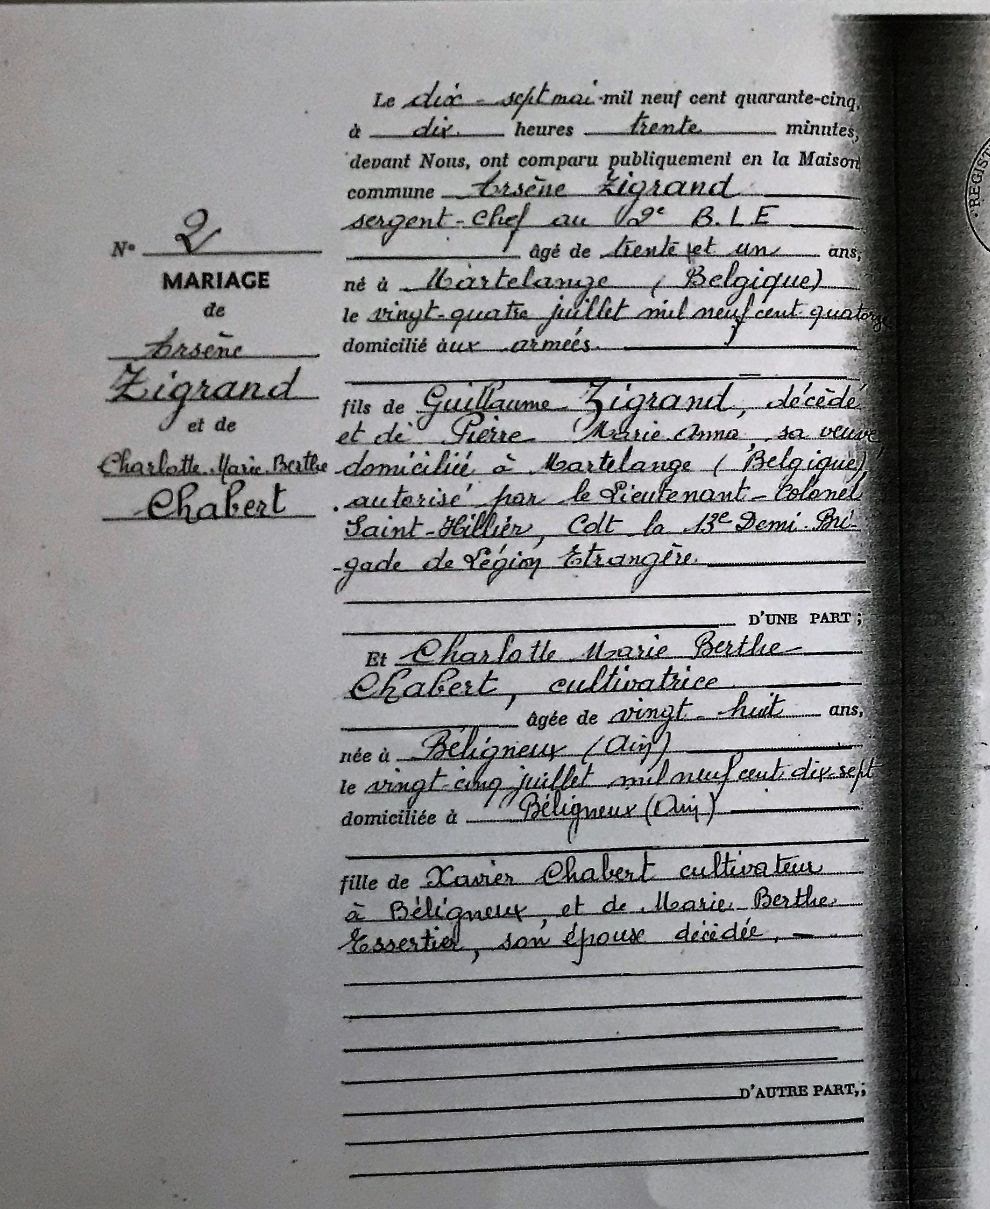 Le dix-sept mai mil neuf cent quarante-cinq,
à dix heures trente minutes,
devant Nous, ont comparu publiquement en la Maison
commune Arsène Zigrand
sergent-Chef au 2e B.L.E
âgé de trente et un ans,
né à Martelange (Belgique)
le vingt-quatre juillet mil neuf cent quatorze
domicilié aux armées.
fils de Guillaume Zigrand, décédé
et de Pierre Marie Anna, sa veuve
domiciliée à Martelange (Belgique)
autorisé par le Lieutenant-Colonel
Saint-Hillier, Cdt la 13e Demi-Bri-
-gade de Légion Etrangère.
D'UNE PART ;
Et Charlotte Marie Berthe
Chabert, cultivatrice
âgée de vingt-huit ans,
née à Béligneux (Ain)
le vingt-cinq juillet mil neuf cent dix-sept
domiciliée à Béligneux (Ain)
fille de Xavier Chabert cultivateur
à Béligneux, et de Marie Berthe
Essertier, son épouse décédée,
D'AUTRE PART,;
N° 2
MARIAGE
de
Arsène
Zigrand
et de
Charlotte Marie Berthe
Chabert